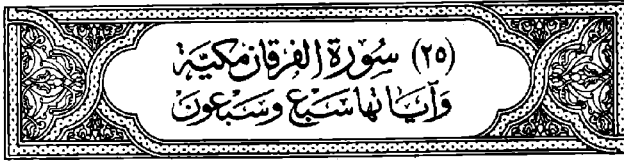 (٢٥) سُورَةُ الفُرقَانِ مَكِيَّة
وَآيَاتُهَا سَبْعٌ وَسَبْعُونَ